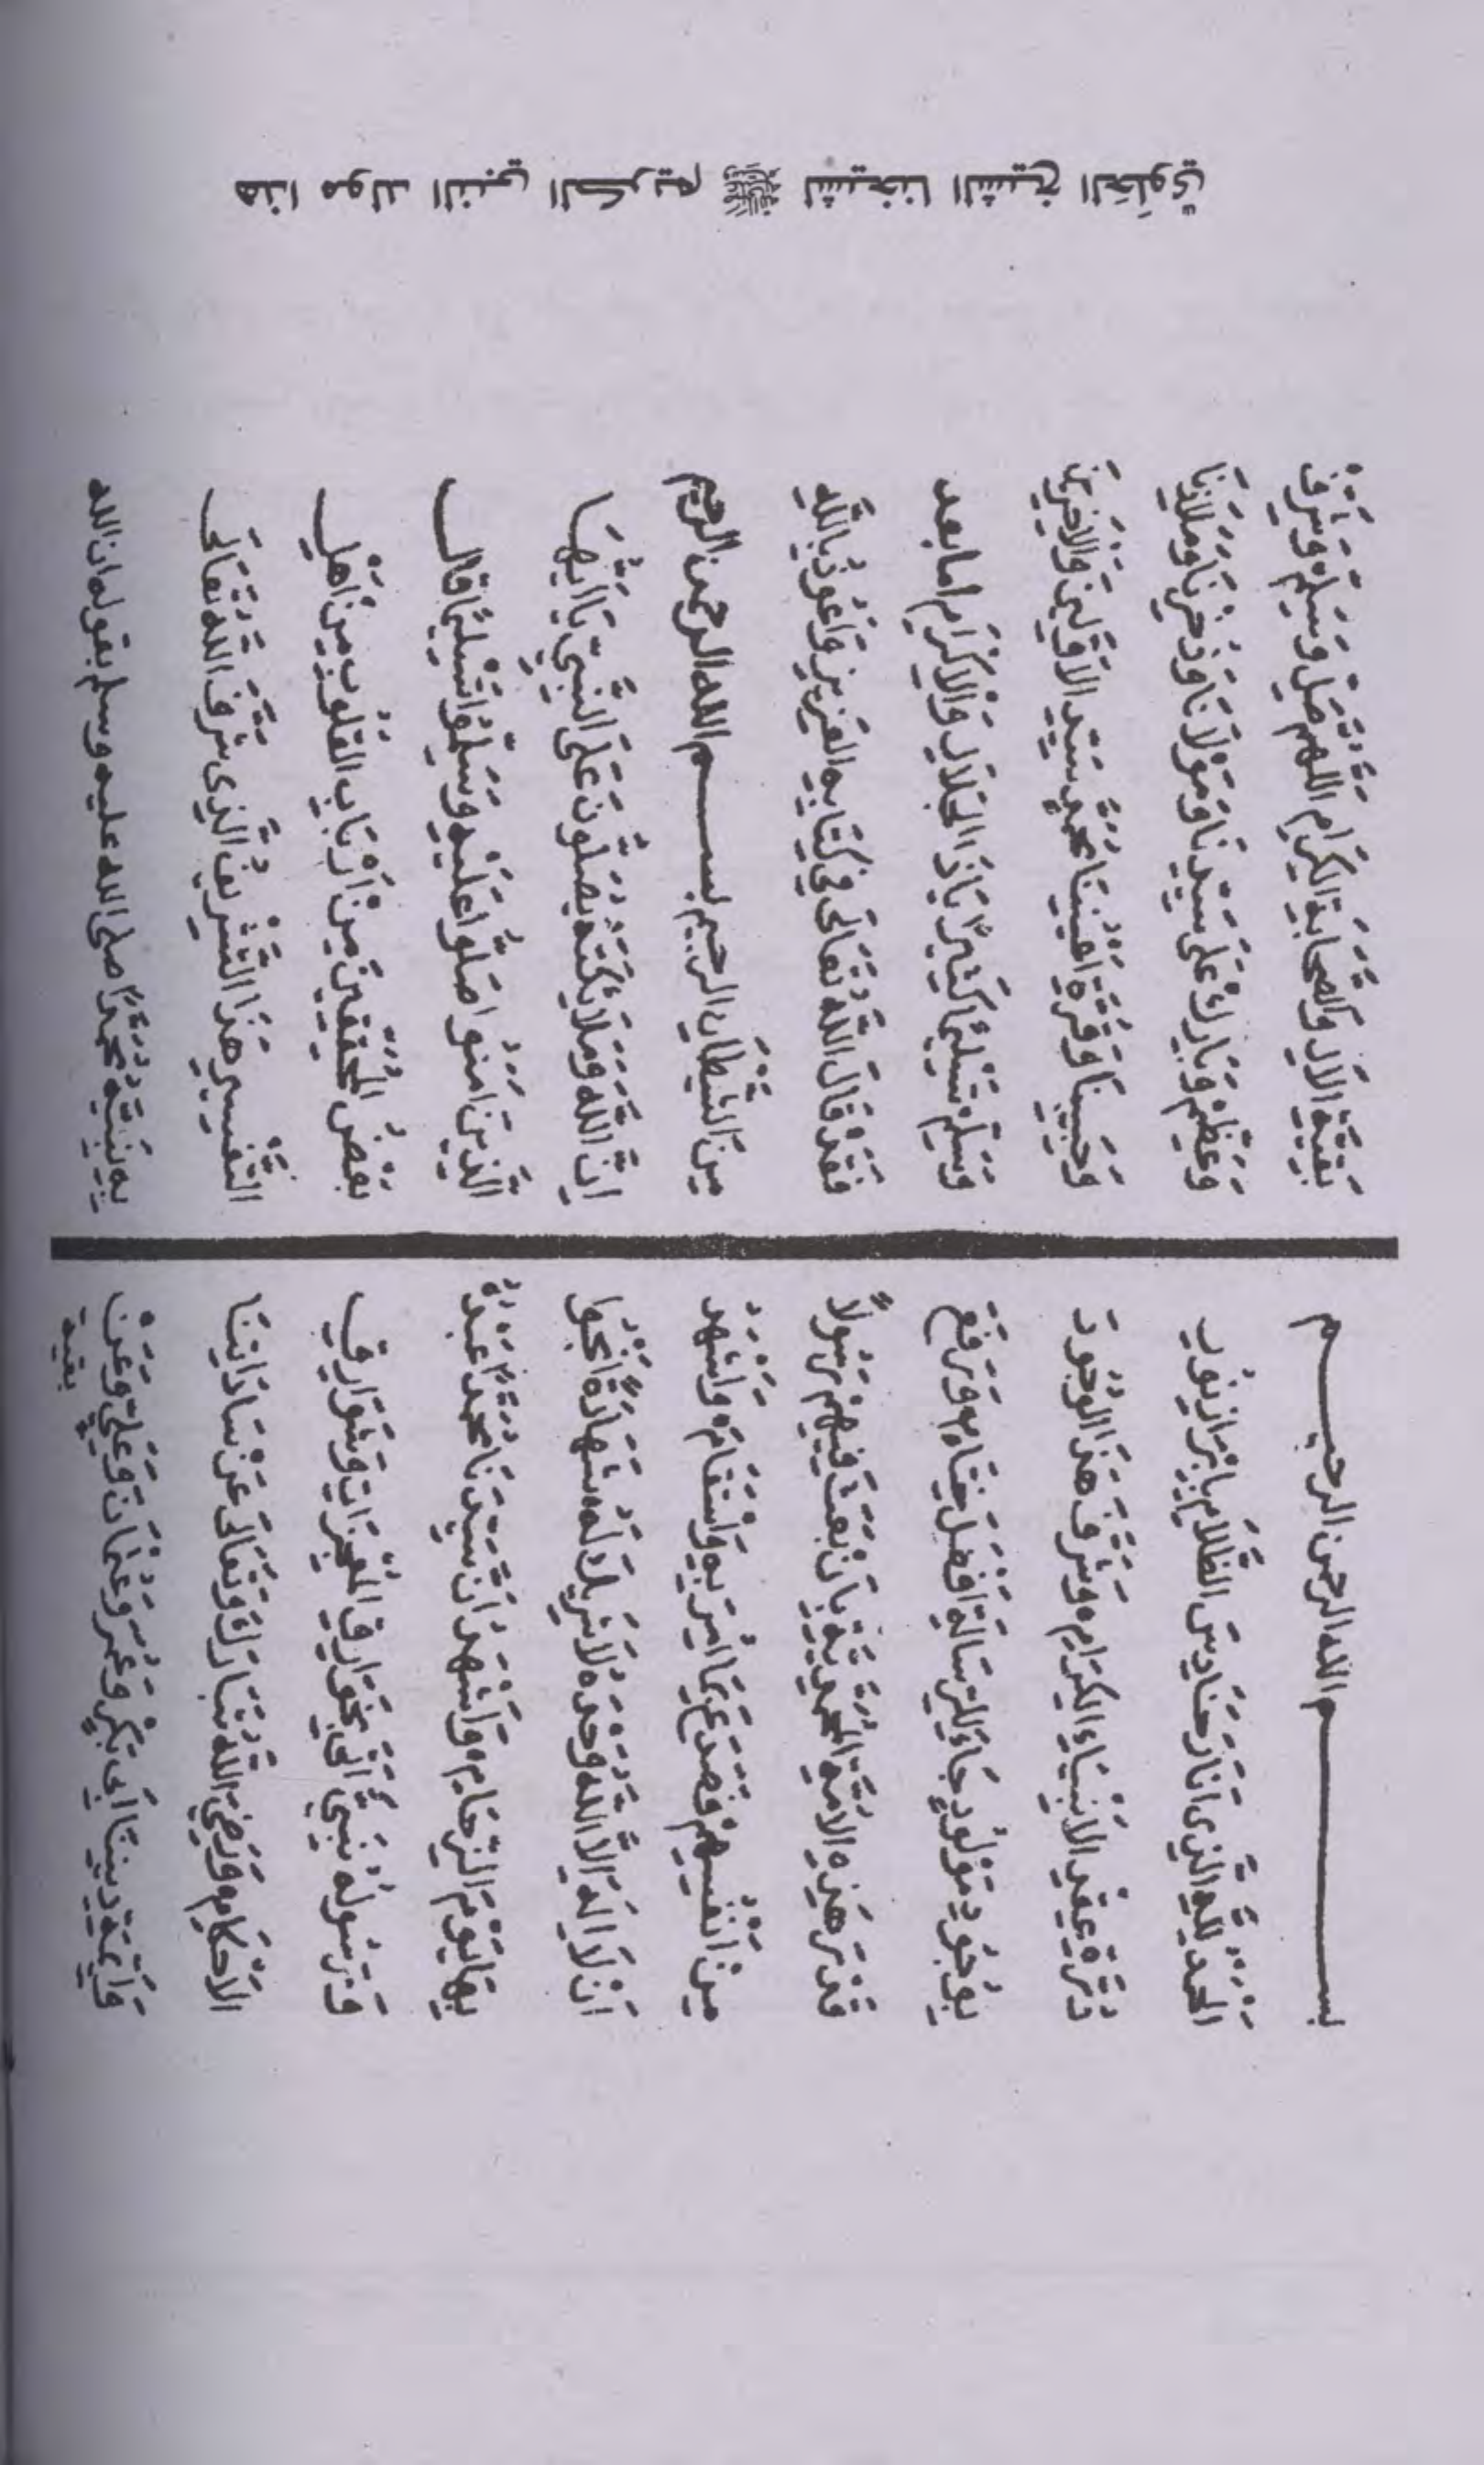 هذا مولد النبي الكريم ﷺ لشيخنا الشيخ الحلوي
بســـم الله الرحمن الرحيـــم
اَلْحَمْدُ لِلّٰهِ الَّذِى اَنَارَ حَنَادِسَ الظَّلَامِ بِاِبْرَازِ نُوْرِ
دُرَّةِ عِقْدِ الْاَنْبِيَاءِ الْكِرَامِ وَشَرَّفَ هٰذَا الْوُجُوْدَ
بِوُجُوْدِ مَوْلُوْدٍ جَاءَ لِلرِّسَالَةِ اَفْضَلَ خِتَامٍ وَرَفَعَ
قَدْرَ هٰذِهِ الْاُمَّةِ الْمُحَمَّدِيَّةِ بِاَنْ بَعَثَ فِيْهِمْ رَسُوْلًا
مِنْ اَنْفُسِهِمْ فَصَدَعَ بِمَا اُمِرَ بِهِ وَاسْتَقَامَ وَاَشْهَدُ
اَنْ لَا اِلٰهَ اِلَّا اللّٰهُ وَحْدَهُ لَا شَرِيْكَ لَهُ شَهَادَةً اَنْجُوْا
بِهَا يَوْمَ الزِّحَامِ وَاَشْهَدُ اَنَّ سَيِّدَنَا مُحَمَّدًا عَبْدُهُ
وَرَسُوْلُهُ نَبِيٌّ اَتٰى بِخَوَارِقِ الْمُعْجِزَاتِ وَشَوَارِقِ
الْاَحْكَامِ وَرَضِيَ اللّٰهُ تَبَارَكَ وَتَعَالٰى عَنْ سَادَاتِنَا
وَاَئِمَّةِ دِيْنِنَا اَبِى بَكْرٍ وَعُمَرَ وَعُثْمَانَ وَعَلِيٍّ وَعَنْ
بقية
بَقِيَّةِ الْاٰلِ وَالصَّحَابَةِ الْكِرَامِ اَللّٰهُمَّ صَلِّ وَسَلِّمْ وَشَرِّفْ
وَعَظِّمْ وَبَارِكْ عَلٰى سَيِّدِنَا وَمَوْلَانَا وَذُخْرِنَا وَمَلَاذِنَا
وَحَبِيْبِنَا وَقُرَّةِ اَعْيُنِنَا مُحَمَّدٍ سَيِّدِ الْاَوَّلِيْنَ وَالْاٰخِرِيْنَ
وَسَلِّمْ تَسْلِيْمًا كَثِيْرًا يَاذَا الْجَلَالِ وَالْاِكْرَامِ اما بعد
فَقَدْ قَالَ اللّٰهُ تَعَالٰى فِى كِتَابِهِ الْعَزِيْزِ وَاَعُوْذُ بِاللّٰهِ
مِنَ الشَّيْطَانِ الرجيم بســـم الله الرحمن الرحيم
اِنَّ اللّٰهَ وَمَلَائِكَتَهُ يُصَلُّوْنَ عَلَى النَّبِيِّ يَا اَيُّهَا
الَّذِيْنَ اٰمَنُوا صَلُّوْا عَلَيْهِ وَسَلِّمُوْا تَسْلِيْمًا قال
بَعْضُ الْمُحَقِّقِيْنَ مِنْ اَرْبَابِ الْقُلُوْبِ مِنْ اَهْلِ
التَّفْسِيْرِ هٰذَا التَّشْرِيْفُ الَّذِى شَرَّفَ اللّٰهُ تَعَالٰى
بِهِ نَبِيَّهُ مُحَمَّدًا صلى الله عليه وسلم بقوله ان الله